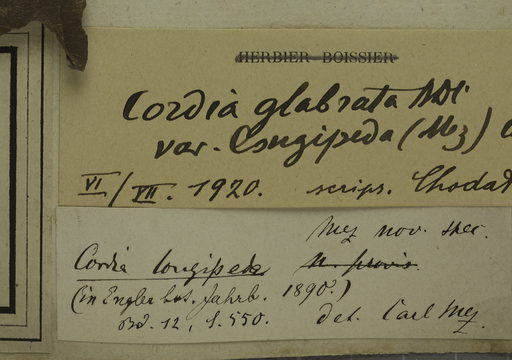 HERBIER BOISSIER
Cordia glabrata ADC
var. longipeda (Mez)
VI/VII. 1920. scrips. Chodat
Mez nov. spec.
Cordia longipeda n. provis.
(in Engler bot. Jahrb. 1890.)
Bd. 12, S. 550. det. Carl Mez.